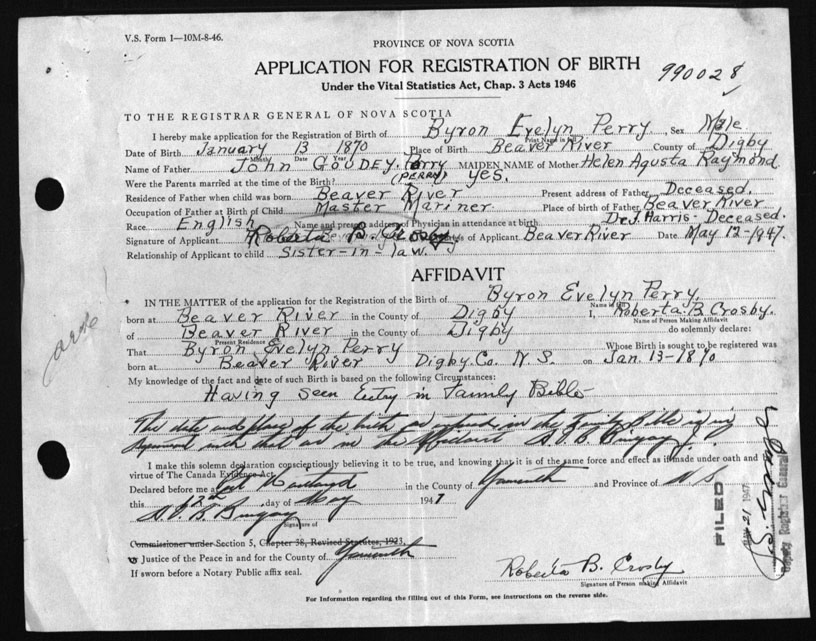 V.S. Form 1—10M-8-46.
PROVINCE OF NOVA SCOTIA
APPLICATION FOR REGISTRATION OF BIRTH
990028
Under the Vital Statistics Act, Chap. 3 Acts 1946
TO THE REGISTRAR GENERAL OF NOVA SCOTIA
I hereby make application for the Registration of Birth of Byron Evelyn Perry, Sex Male
Print Name in full
Date of Birth January 13 1870 Place of Birth Beaver River County of Digby
Month Date Year
Name of Father John Goudey Perry MAIDEN NAME of Mother Helen Agusta Raymond
(PERRY)
Were the Parents married at the time of the Birth? yes.
Residence of Father when child was born Beaver River Present address of Father Deceased.
Occupation of Father at Birth of Child Master Mariner Place of birth of Father Beaver River
Race English Name and present address of Physician in attendance at birth Dr J. Harris - Deceased.
Signature of Applicant Roberta B. Crosby Address of Applicant Beaver River Date May 12-1947.
Relationship of Applicant to child Sister-in-law
AFFIDAVIT
IN THE MATTER of the application for the Registration of the Birth of Byron Evelyn Perry,
Name in full
born at Beaver River in the County of Digby I, Roberta B Crosby.
Name of Person Making Affidavit
of Beaver River in the County of Digby do solemnly declare:
Present Residence
That Byron Evelyn Perry Whose Birth is sought to be registered was
born at Beaver River Digby Co. N S. on Jan. 13-1870
My knowledge of the fact and date of such Birth is based on the following Circumstances:
Having seen Entry in Family Bible
The date and place of the birth as entered in the Family Bible is in
agreement with that as in the Affidavit
I make this solemn declaration conscientiously believing it to be true, and knowing that it is of the same force and effect as if made under oath and
virtue of The Canada Evidence Act.
Declared before me at in the County of Yarmouth and Province of N S
this 12th day of May 1947
Signature of
Commissioner under Section 5, Chapter 38, Revised Statutes, 1923,
Justice of the Peace in and for the County of Yarmouth
If sworn before a Notary Public affix seal.
Roberta B. Crosby
Signature of Person making Affidavit
For Information regarding the filling out of this Form, see instructions on the reverse side.
FILED
21 1947
Deputy Registrar General